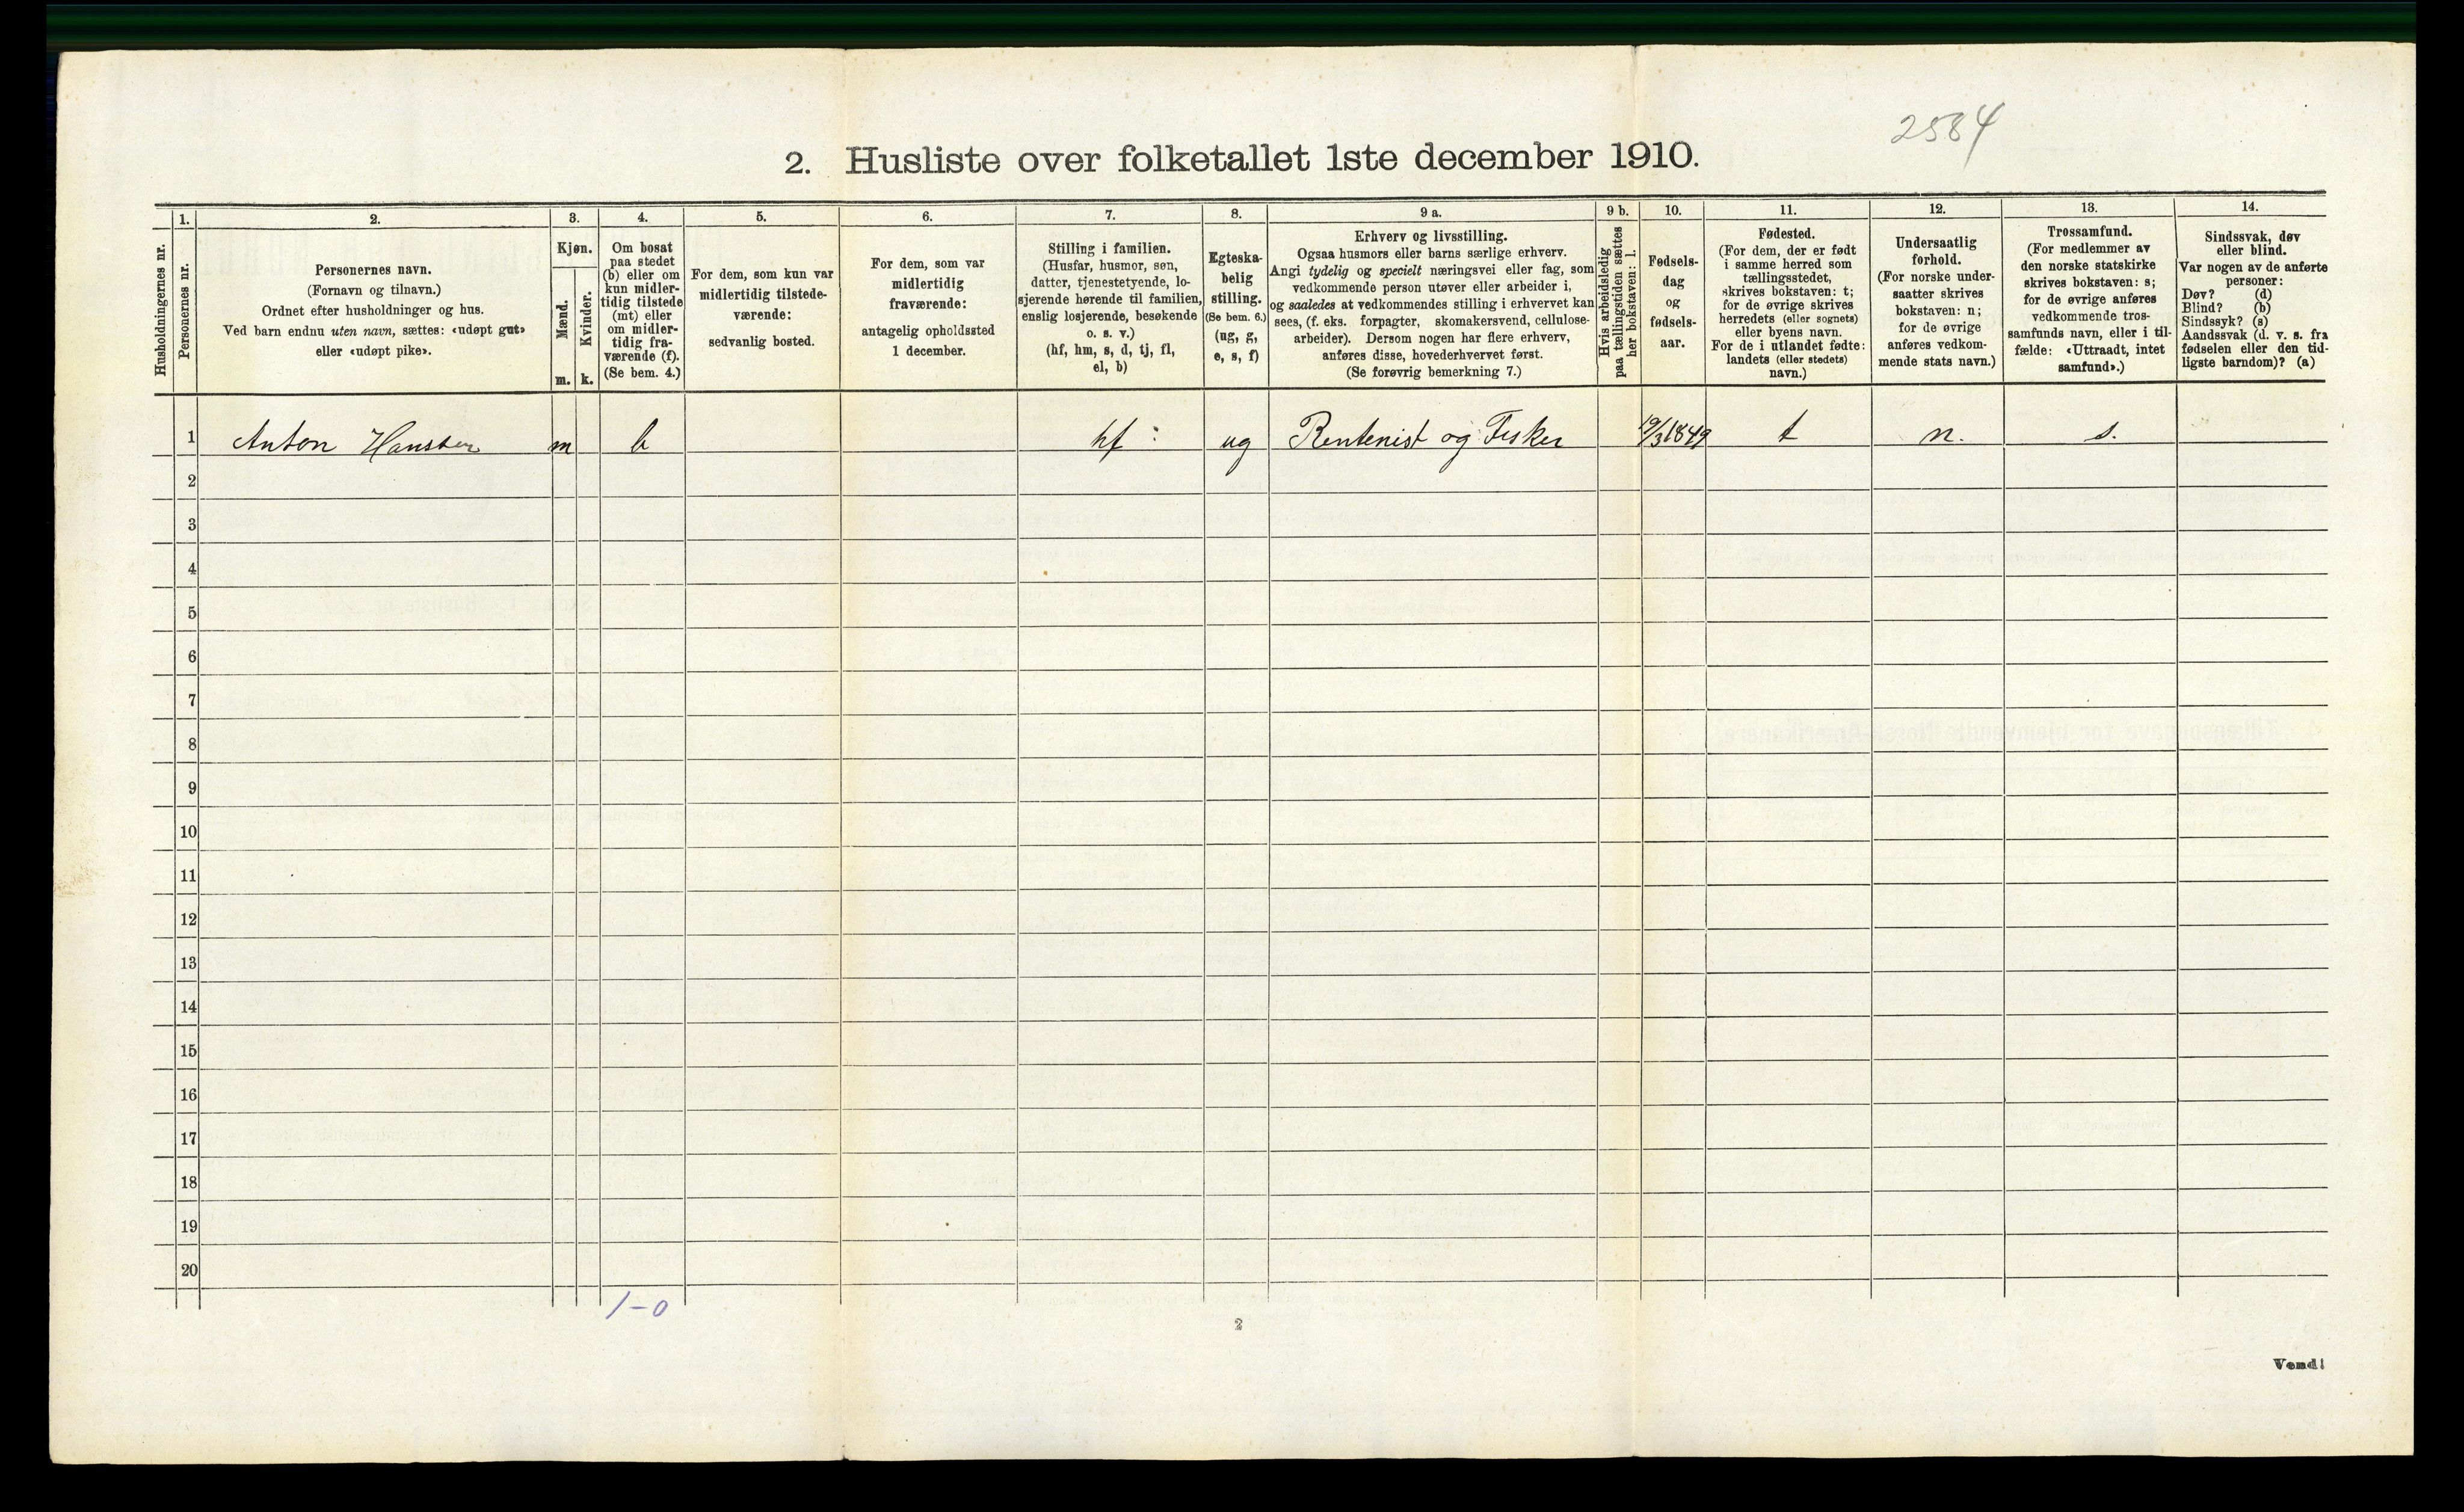 2584
2. Husliste over folketallet 1ste december 1910.
Husholdningernes nr.
1.
Personernes nr.
2.
Personernes navn.
(Fornavn og tilnavn.)
Ordnet efter husholdninger og hus.
Ved barn endnu uten navn, sættes: «udøpt gut»
eller «udøpt pike».
3.
Kjøn.
Mænd.
m.
Kvinder.
k.
4.
Om bosat
paa stedet
(b) eller om
kun midler-
tidig tilstede
(mt) eller
om midler-
tidig fra-
værende (f).
(Se bem. 4.)
5.
For dem, som kun var
midlertidig tilstede-
værende:
sedvanlig bosted.
6.
For dem, som var
midlertidig
fraværende:
antagelig opholdssted
1 december.
7.
Stilling i familien.
(Husfar, husmor, søn,
datter, tjenestetyende, lo-
sjerende hørende til familien,
enslig losjerende, besøkende
o. s. v.)
(hf, hm, s, d, tj, fl,
el, b)
8.
Egteska-
belig
stilling.
(Se bem. 6.)
(ug, g,
e, s, f)
9 a.
Erhverv og livsstilling.
Ogsaa husmors eller barns særlige erhverv.
Angi tydelig og specielt næringsvei eller fag, som
vedkommende person utøver eller arbeider i,
og saaledes at vedkommendes stilling i erhvervet kan
sees, (f. eks. forpagter, skomakersvend, cellulose-
arbeider). Dersom nogen har flere erhverv,
anføres disse, hovederhvervet først.
(Se forøvrig bemerkning 7.)
9 b.
Hvis arbeidsledig
paa tællingstiden sættes
her bokstaven: l.
10.
Fødsels-
dag
og
fødsels-
aar.
11.
Fødested.
(For dem, der er født
i samme herred som
tællingsstedet,
skrives bokstaven: t;
for de øvrige skrives
herredets (eller sognets)
eller byens navn.
For de i utlandet fødte:
landets (eller stedets)
navn.)
12.
Undersaatlig
forhold.
(For norske under-
saatter skrives
bokstaven: n;
for de øvrige
anføres vedkom-
mende stats navn.)
13.
Trossamfund.
(For medlemmer av
den norske statskirke
skrives bokstaven: s;
for de øvrige anføres
vedkommende tros-
samfunds navn, eller i til-
fælde: «Uttraadt, intet
samfund».)
14.
Sindssvak, døv
eller blind.
Var nogen av de anførte
personer:
Døv? (d)
Blind? (b)
Sindssyk? (s)
Aandssvak (d. v. s. fra
fødselen eller den tid-
ligste barndom)? (a)
1 Anton Hansen m b hf ug Rentenist og Fisker 19/3 1849 t n. s.
2
3
4
5
6
7
8
9
10
11
12
13
14
15
16
17
18
19
20
1-0
2
Vend!